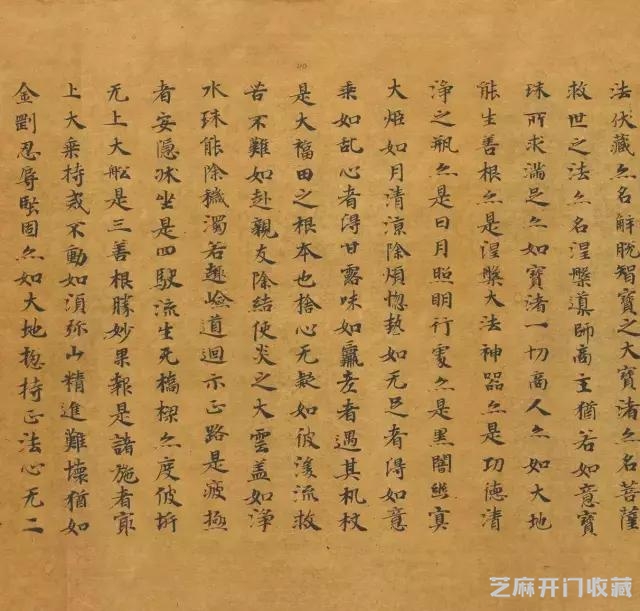 法伏藏亦名解脱智寶之大寶渚亦名菩薩
救世之法亦名涅槃導師商主猶若如意寶
珠所求滿足亦如寶渚一切商人亦如大地
能生善根亦是涅槃大法神器亦是功德清
淨之瓶亦是日月照明行處亦是黑闇燈寘
大炬如月清涼除煩惚熱如无足者得如意
乘如乱心者得甘露味如羸老者遇其机杖
是大福田之根本也捨心无疑如彼瀑流救
苦不難如赴親友除結使炎之大雲盖如淨
水珠能除穢濁若趣嶮道迴示正路是疲極
者安隱牀坐是四駛流生死橋樑亦度彼岸
无上大舩是三善根勝妙果報是諸施者冣
上大乗持戒不動如湏弥山精進難壞猶如
金剛忍辱堅固亦如大地惣持正法心无二
芝麻开门收藏